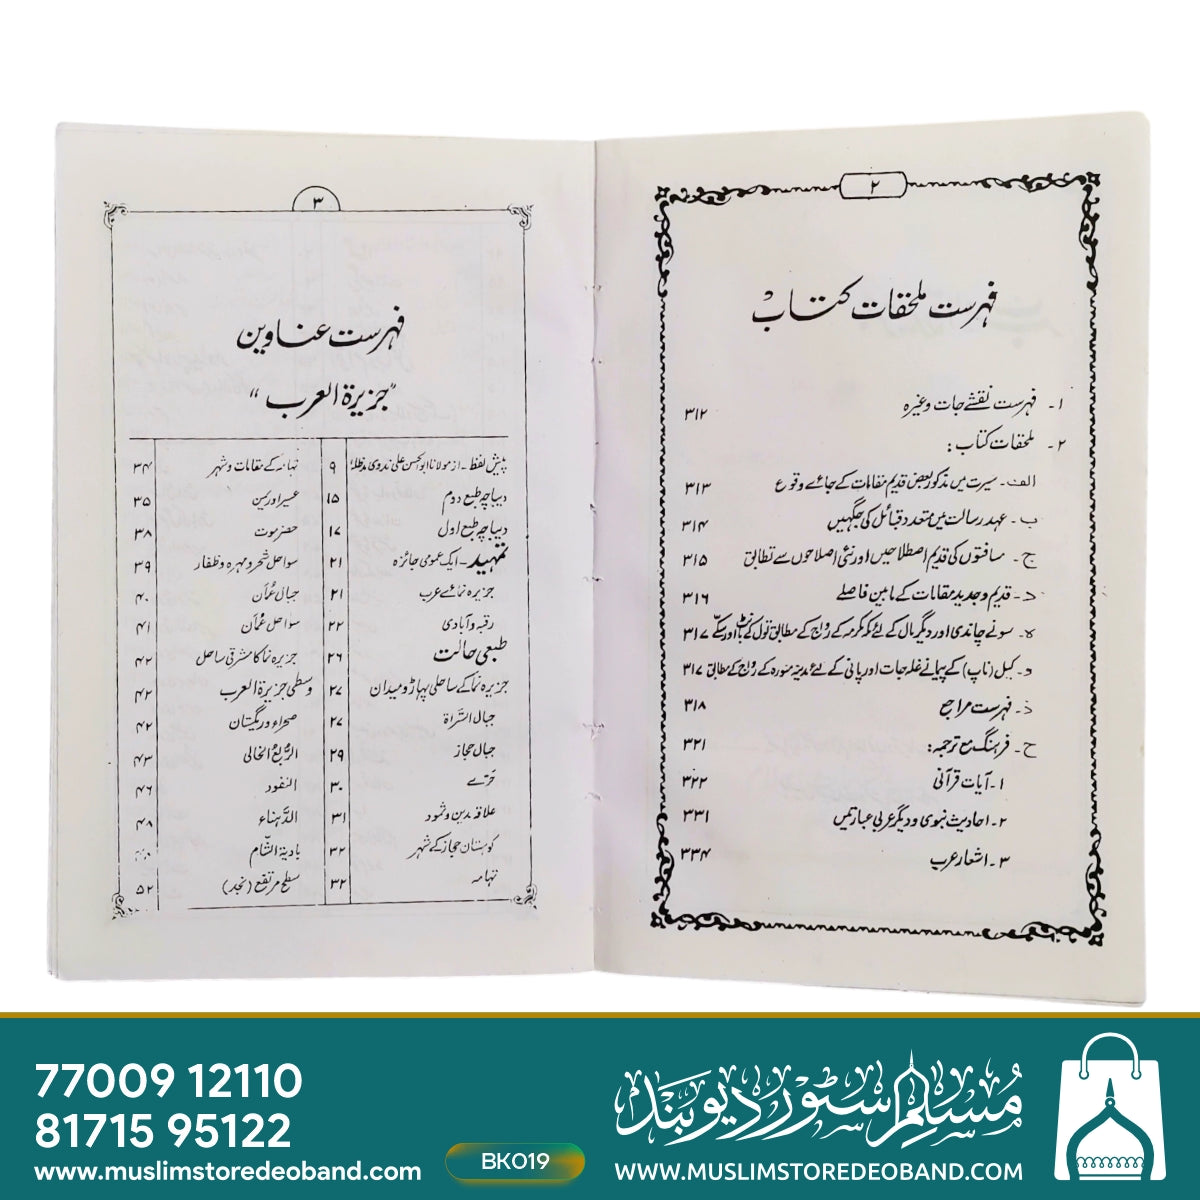 ۲
فہرست ملحقات کتاب
۱۔ فہرست نقشے جات وغیرہ ۳۱۲
۲۔ ملحقات کتاب:
الف۔ سیرت میں مذکور بعض قدیم مقامات کے جائے وقوع ۳۱۳
ب۔ عہد رسالت میں متعدد قبائل کی جگہیں ۳۱۴
ج۔ مسافتوں کی قدیم اصطلاحیں اور نئی اصلاحوں سے تطابق ۳۱۵
د۔ قدیم و جدید مقامات کے مابین فاصلے ۳۱۶
ہ۔ سونے چاندی اور دیگر مال کے لئے مکہ مکرمہ کے رواج کے مطابق تول کے باٹ اور سکے ۳۱۷
و۔ کیل (ناپ) کے پیمانے غلہ جات اور پانی کے لئے مدینہ منورہ کے رواج کے مطابق ۳۱۷
ذ۔ فہرست مراجع ۳۱۸
ح۔ فرہنگ مع ترجمہ: ۳۲۱
۱۔ آیات قرآنی ۳۲۲
۲۔ احادیث نبوی و دیگر عربی عبارتیں ۳۳۱
۳۔ اشعار عرب ۳۳۴
۳
فہرست عناوین
”جزیرۃ العرب“
پیش لفظ۔ از مولانا ابوالحسن علی ندوی مدظلہٗ ۹
دیباچہ طبع دوم ۱۵
دیباچہ طبع اول ۱۷
تمہید۔ ایک عمومی جائزہ ۲۱
جزیرہ نمائے عرب ۲۱
رقبہ و آبادی ۲۲
طبعی حالت ۲۶
جزیرہ نما کے ساحلی پہاڑ و میدان ۲۷
جبال السَّراۃ ۲۷
جبال حجاز ۲۹
حَرّے ۳۰
علاقہ مدین و ثمود ۳۱
کوہستان حجاز کے شہر ۳۲
تہامہ ۳۲
تہامہ کے مقامات و شہر ۳۴
عسیر اور یمن ۳۵
حضرموت ۳۸
سواحل شحر و مہرہ و ظفار ۳۹
جبال عُمَان ۴۰
سواحل عُمان ۴۱
جزیرہ نما کا مشرقی ساحل ۴۲
وسطی جزیرۃ العرب ۴۲
صحراء و ریگستان ۴۲
الرُّبعُ الخالی ۴۳
النفود ۴۶
الدَّہناء ۴۸
بادیۃ الشّام
سطح مرتفع (نجد) ۵۲
77009 12110
81715 95122
www.muslimstoredeoband.com
BK019
مُسلم سٹور دیوبند
WWW.MUSLIMSTOREDEOBAND.COM